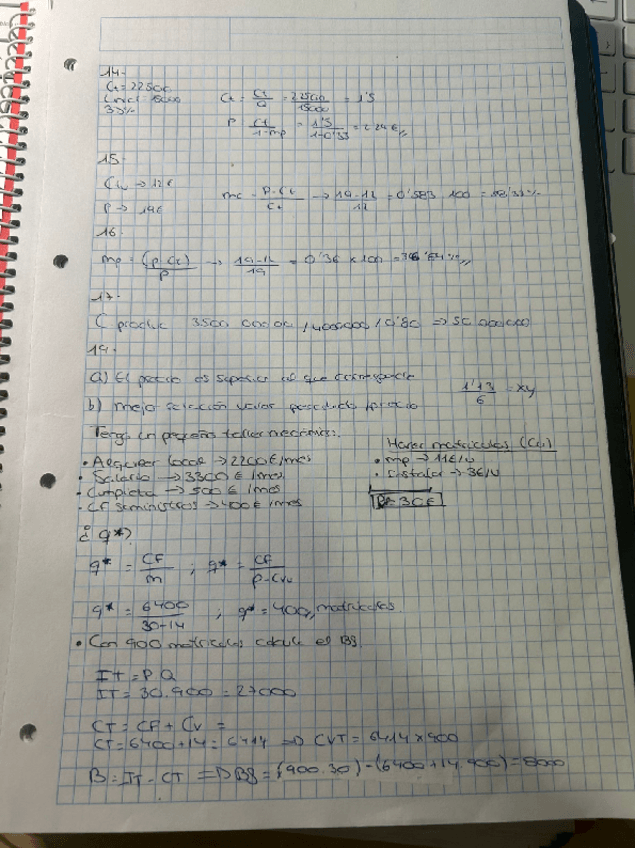 14-
C₁ = 22500
33%
C₁ = C₁/Q = 22500/15000 = 1'5
P C₁/1-mp = 1'5/1-0'33 = 2'24€,,
15-
→ 12€
P → 19€
mc = P-C₁/C₁ → 19-12/12 = 0'583 . 100 =
16-
mp = (P-C₁)/P → 19-12/19 = 0'36 × 100 =
17-
C produc 3500 000,00 / / 0'80 ⇒ 50 000000
19-
a) El precio es superior al que
b) mejor selección valor precio
1'13/6 = xy
Tengo un pequeño taller mecánico.
• Alquiler local → 2200€/mes
• Salario → 3300 € /mes
• → 500 € /mes
• CF suministros → 400€/mes
Hacer matriculas
• mp → 11€/u
• Instalar → 3€/u
P = 30€
¿ q*?
q* = CF/m ; q* = CF/P-Cvu
q* = 6400/30-14 ; q* = 400,, matriculas
• Con 900 matriculas calcula el Bº
IT = P.Q
IT = 30.900 = 27000
CT = CF + CV =
CT = 6400+14 = 6414 ⇒ CVT = 6414×900
B = IT - CT ⇒ Bº = (900.30) - (6400+14.900) = 8000